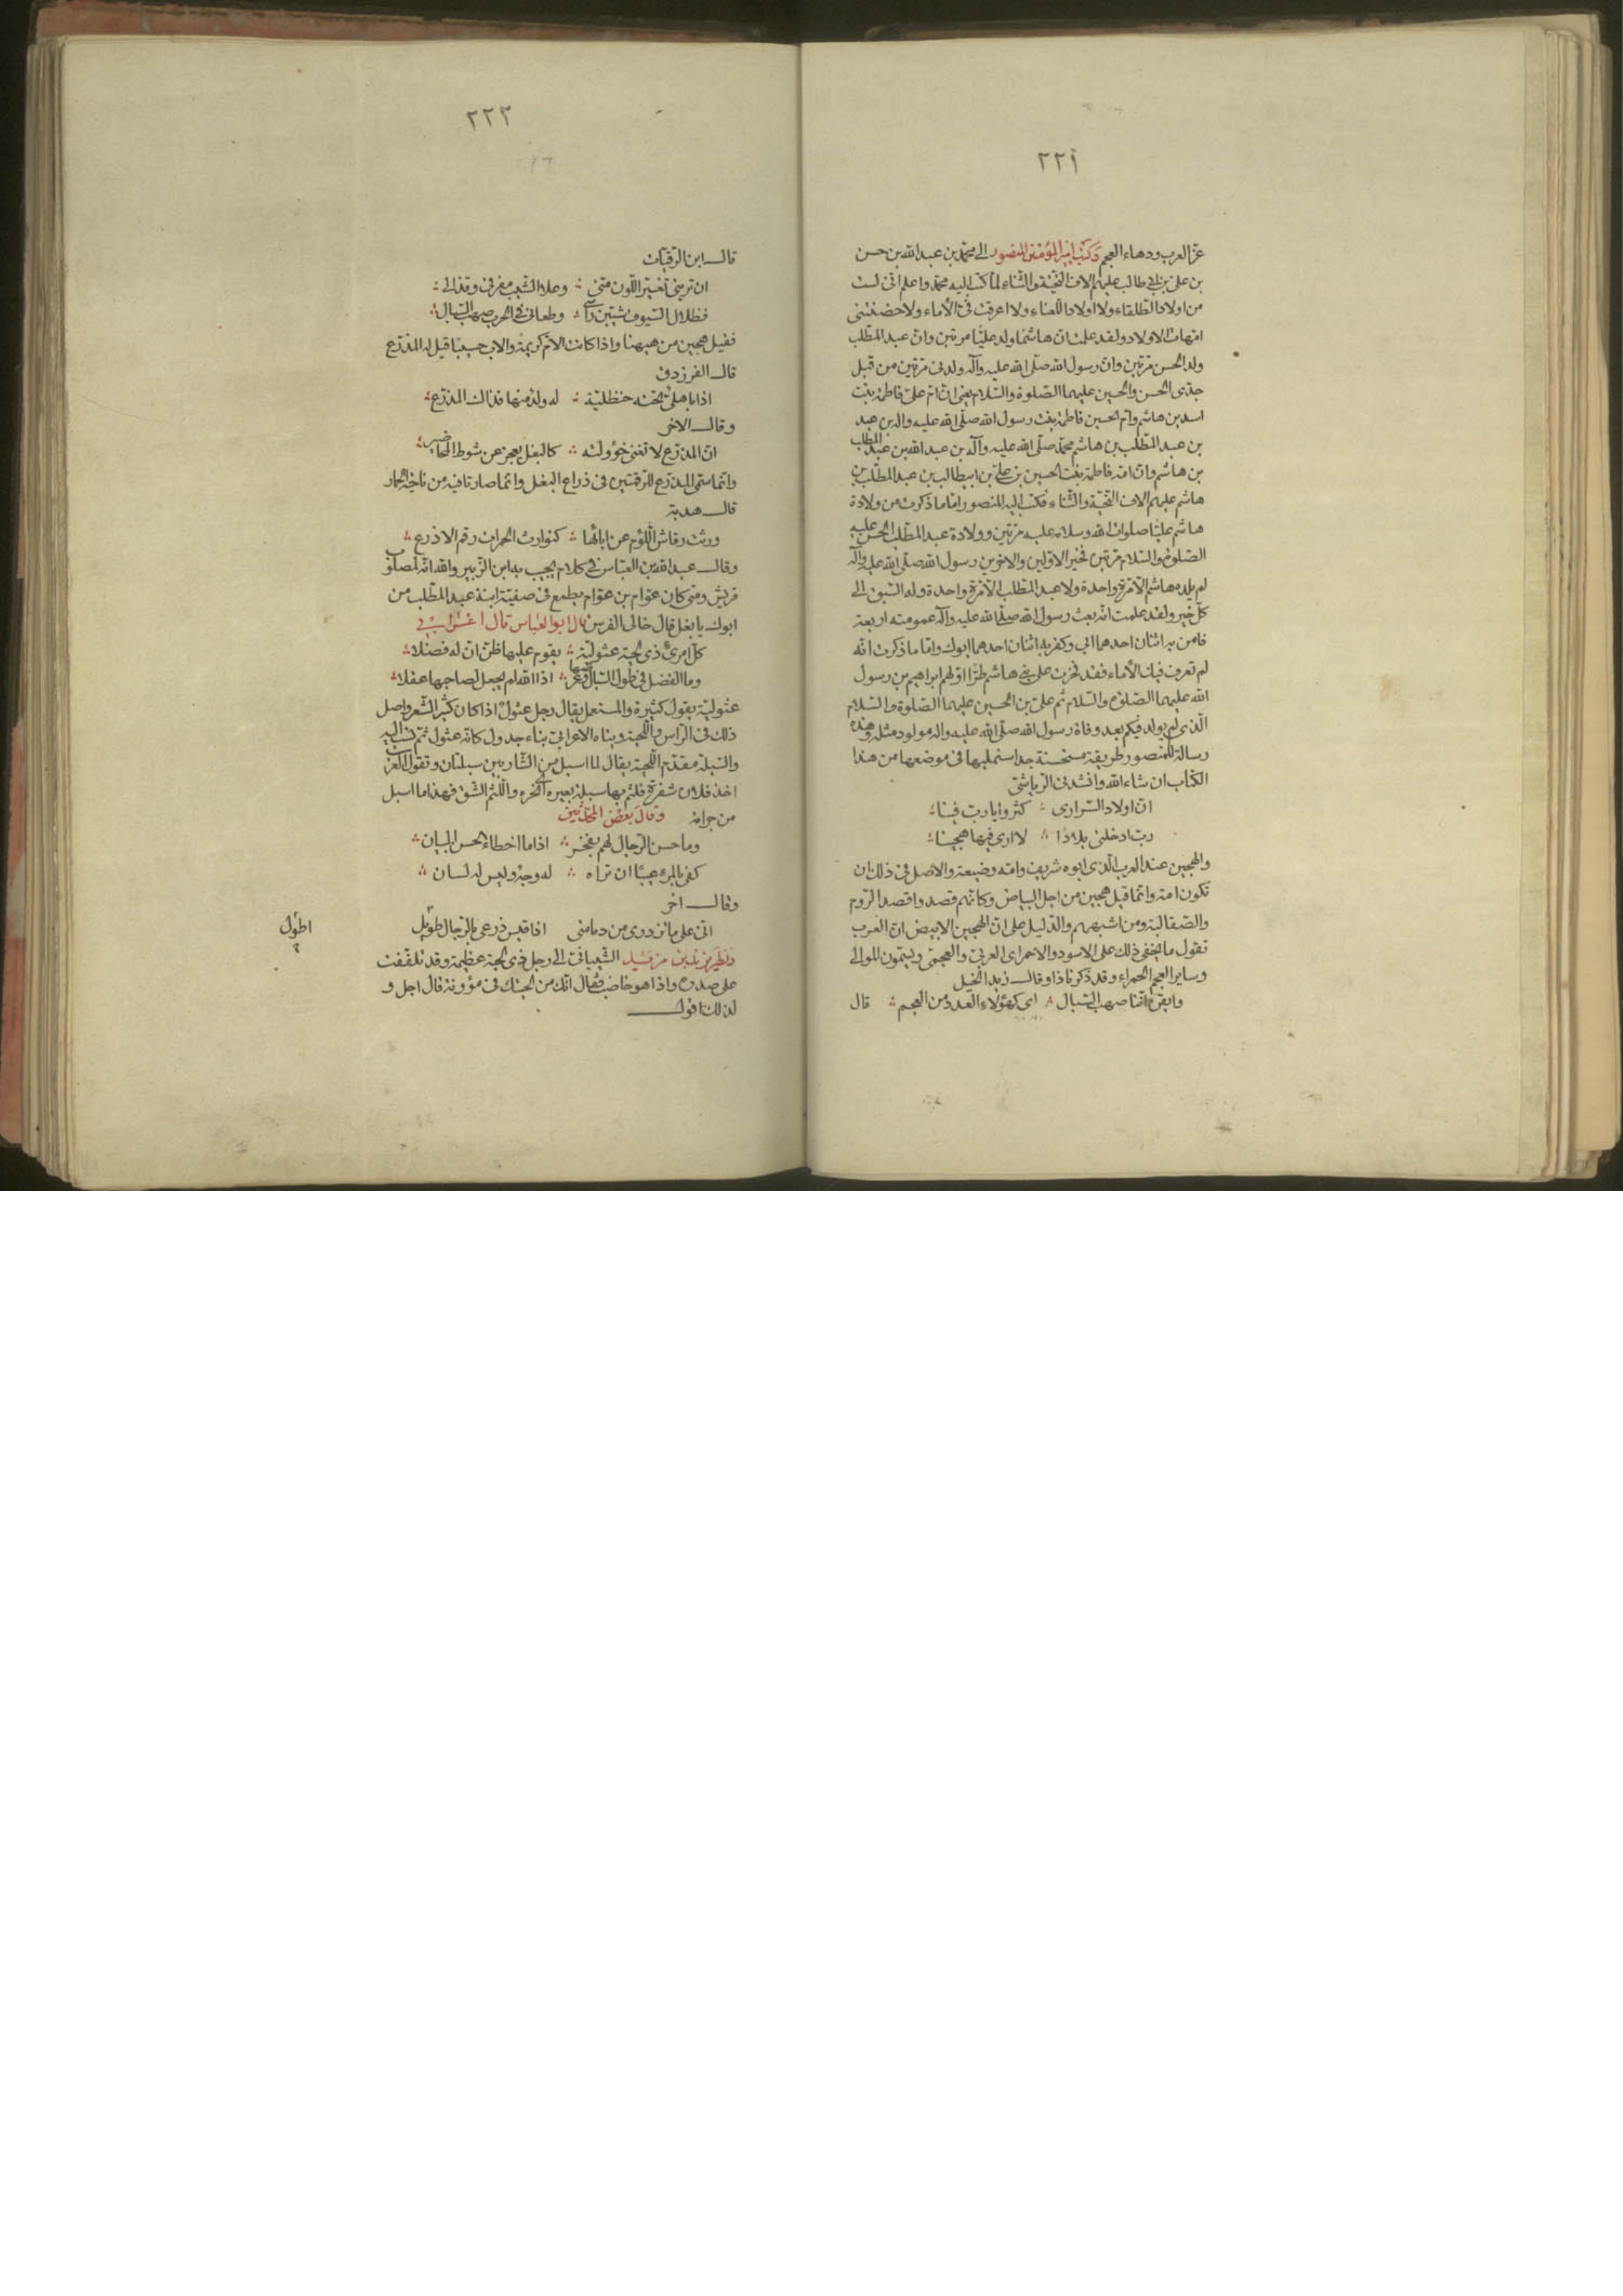 ٢٢١
عز العرب ودهاء العجم وكتب امير المؤمنين المنصور الى محمد بن عبد الله بن حسن
بن على بن ابى طالب عليهم الاف التحية والثناء لما كتب اليه محمد واعلم انى لست
من اولاد الطلقاء ولا اولاد اللعناء ولا اعرقت فى الأماء ولا حضنتنى
امهات الاولاد ولقد علمت ان هاشما ولد عليا مرتين وان عبد المطلب
ولد الحسن مرتين وان رسول الله صلى الله عليه وآله ولدنى مرتين من قبل
جدى الحسن والحسين عليهما الصلوة والسلام يعنى ان ام على فاطمة بنت
اسد بن هاشم وام الحسين فاطمة بنت رسول الله صلى الله عليه واله بن عبد
بن عبد المطلب بن هاشم محمد صلى الله عليه وآله بن عبد الله بن عبد المطلب
بن هاشم وان امه فاطمة بنت الحسين بن على بن ابيطالب بن عبد المطلب بن
هاشم عليهم الاف التحية والثناء فكتب اليه المنصور اما ما ذكرت من ولادة
هاشم عليا صلوات الله وسلامه عليه مرتين وولادة عبد المطلب الحسن عليه
الصلوة والسلام مرتين فخير الاولين والاخرين رسول الله صلى الله عليه وآله
لم يلده هاشم الا مرة واحدة ولا عبد المطلب الا مرة واحدة وله السبق الى
كل خير ولقد علمت انه بعث رسول الله صلى الله عليه وآله عمومته اربعة
فامن به اثنان احدهما ابى وكفر به اثنان احدهما ابوك واما ما ذكرت انه
لم تعرق فيك الأماء فقد فخرت على بنى هاشم طرا اولهم ابراهيم بن رسول
الله عليهما الصلوة والسلام ثم على بن الحسين عليهما الصلوة والسلام
الذى لم يولد فيكم بعد وفاة رسول الله صلى الله عليه واله مولود مثله وهذه
رسالة للمنصور طريقة مستحسنة جدا سنمليها فى موضعها من هذا
الكتاب ان شاء الله وانشدنى الرياشى
ان اولاد السرارى كثروا يا رب فينا
رب ادخلنى بلادا لا ارى فيها هجينا
والهجين عند العرب الذى ابوه شريف وامه وضيعة والاصل فى ذلك ان
تكون امة وانما قيل هجين من اجل البياض وكانهم قصدوا قصد الروم
والصقالبة ومن اشبههم والدليل على ان الهجين الابيض ان العرب
تقول ما يخفى ذلك على الاسود والاحمر اى العربى والعجمى ويسمون الموالى
وساير العجم الحمراء وقد ذكرنا ذا وقال زيد الخيل
وايقن اننا صهب السبال اى كهؤلاء العدو من العجم قال
٢٢٢
قال ابن الرقيات
ان ترينى تغير اللون منى وعلا الشيب مفرقى وقذالى
فظلال السيوف شيبن رأسى وطعانى فى الحرب صهب السبال
فقيل هجين من هيهنا واذا كانت الام كريمة والاب خسيسا قيل له المذرع
قال الفرزدق
اذا باهلى تحته حنظلية له ولد منها فذاك المذرع
وقال الاخر
ان المذرع لا تغنى خؤولته كالبغل يعجز عن شوط المحاضير
وانما سمى المذرع للرقمتين فى ذراع البغل وانما صارتا فيه من ناحية الحمار
قال هدبة
ورثت رقاش اللؤم عن ابائها كتوارث الحمرات رقم الاذرع
وقال عبد الله بن العباس فى كلام يجيب به ابن الزبير والله انه لمصلوب
قريش ومتى كان عوام بن عوام يطمع فى صفية ابنة عبد المطلب من
ابوك يا بغل قال خالى الفرس قال ابو العباس قال اعرابى
كل امرئ ذى لحية عثولية يقوم عليها ظن ان له فضلا
وما الفضل فى طول السبال وعرضها اذا الله لم يجعل لصاحبها عقلا
عثولية يقول كثيرة والمستعمل يقال رجل عثول اذا كان كثير الشعر واصل
ذلك فى الراس واللحية وبناه الاعرابى بناء جدول كانه عثول ثم نسب اليه
والسبلة مقدم اللحية يقال لما اسبل من الشاربين سبلتان وتقول العرب
اخذ فلان شفرة فلثم بها سبلة بعيره اى نحره واللثم الشق فهذا ما اسبل
من جرانه وقال بعض المحدثين
وما حسن الرجال لهم بفخر اذا ما اخطاء الحسن البيان
كفى بالمرء عيبا ان تراه له وجه وليس له لسان
وقال اخر
انى على ما تزدرى من دمامتى اذا قيس ذرعى بالرجال طويل
اطول
ونظر يزيد بن مزيد الشيبانى الى رجل ذى لحية عظيمة وقد تلففت
على صدره واذا هو خاضب فقال انك من لحيتك فى مؤونة قال اجل و
لذلك اقول